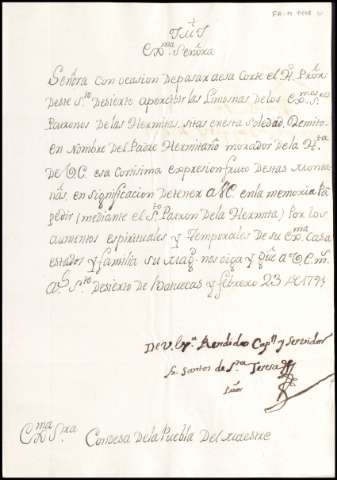 J†M y J
Exma Señora
Señora con ocasion de pasar a esa Corte el H. Pror
deste Sto Desierto apercibir las Limosnas de los Exmos Ses
Patronos de las Hermitas, sitas en esta Soledad, Remito
en Nombre del Padre Hermitaño morador de la Hta
de V.E. esa Cortissima expresion fruto destas Monta
ñas, en significacion de tener a V.E. en la memoria Pa
Pedir (mediante el Sto Patron de la Hermita) Por los
aumentos espirituales y Temporales de su Exma Casa
estados y familia su Magd nos oiga y gue a V.E. ms
as Sto Desierto de y febrero 23 de
De V. Exa Rendido Capn y Servidor
Fr. Santos de Sta Teresa
Prior
Exma Sra Condesa de la Puebla Del Maestre